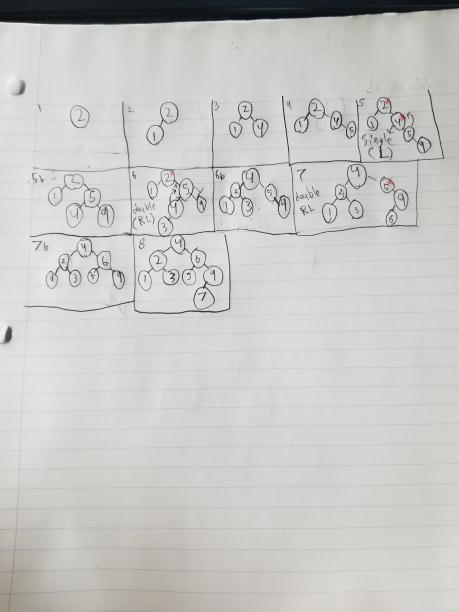 1
2
2
2
1
3
2
1 4
4
2
1 4
5
5
2
1 4
5
9
single
(L)
5b
2
1 5
4 9
6
2
1 5
4 9
3
double
(RL)
6b
4
2 5
1 3 9
7
4
2 5
1 3 9
6
double
RL
7b
4
2 6
1 3 5 9
8
4
2 6
1 3 5 9
7